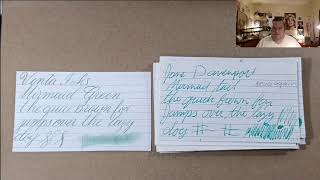 Venta Inks
Mermaid Green
the quick brown fox
jumps over the lazy
dog
Jane Davenport
Mermaid Tail
the quick brown fox
Jumps over the lazy
dog